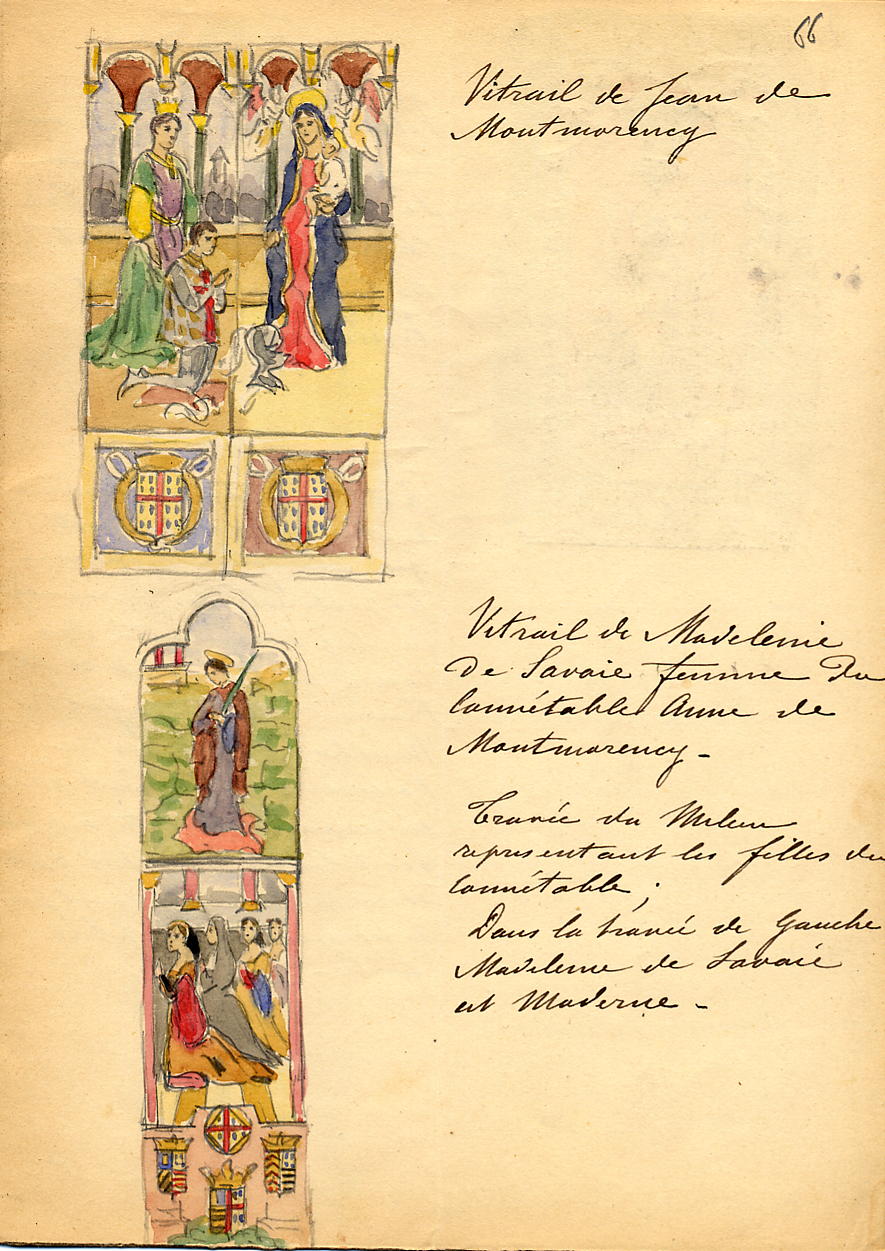 66
Vitrail de Jean de
Montmorency
Vitrail de Madeleine
de Savoie femme du
Connétable Anne de
Montmorency -
Travée du Milieu
representant les filles du
Connétable ;
Dans la travée de Gauche
Madeleine de Savoie
est Moderne -